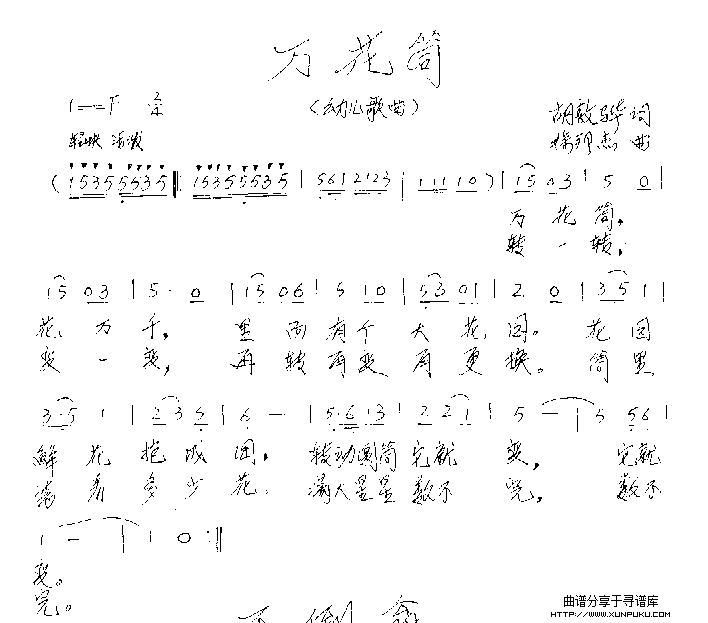 万花筒
1=F 2/4 (幼儿歌曲) 胡敦骅 词
轻快 活泼 杨理杰 曲
(1535 5535 ‖: 1535 5535 | 561 2123 | 1 1 1 1 0) | 15 03 | 5 0 |
万花筒,
转一转,
15 03 | 5· 0 | 15 06 | 5 10 | 53 01 | 2 0 | 35 1 |
花万千, 里面有个大花园。 花园
变一变, 再转再变再更换。 筒里
3·5 1 | 23 5 | 6 — | 5·6 13 | 2 21 | 5 — | 5 561 |
鲜花抱成团, 转动圆筒它就变, 它就
藏着多少花, 满天星星数不完, 数不
1 — | 1 0 :‖
变。
完。
不倒翁
曲谱分享于寻谱库
HTTP://WWW.XUNPUKU.COM